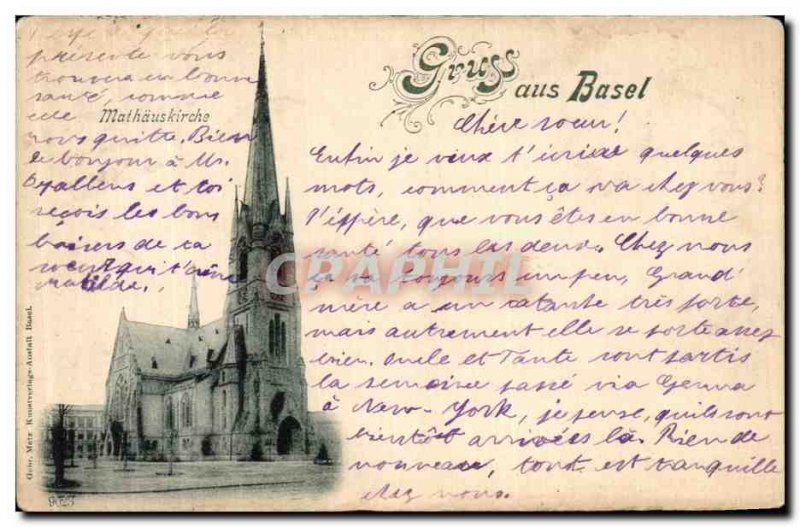 Gruss
aus Basel
Mathäuskirche
Chère soeur!
Enfin je veux t'écrire quelques
mots, comment ça va chez vous?
J'éspère, que vous êtes en bonne
santé tous les deux. Chez nous
ça va toujours un peu, Grand'
mère a un catarre très forte,
mais autrement elle se porte assez
bien. Oncle et Tante sont partis
la semaine passé via Genua
à New-York, je pense, qu'ils sont
bientôt arrivées là. Rien de
nouveau, tout est tranquille
chez nous.
présente vous
trouvera en bonne
santé, comme
elle
nous quitte. Bien
le bonjour à Mr.
et toi
reçois les bons
baisers de ta
soeur qui t'aime
Matilde.
CRAPHIL
Gebr. Metz Kunstverlags-Anstalt Basel.